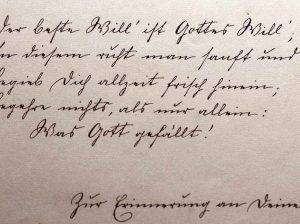 der beste Will' ist Gottes Will',
In diesem ruht man sanft und
begieb Dich allzeit frisch hinein;
begehre nichts, als nur allein:
Was Gott gefällt!
Zur Erinnerung an Deine